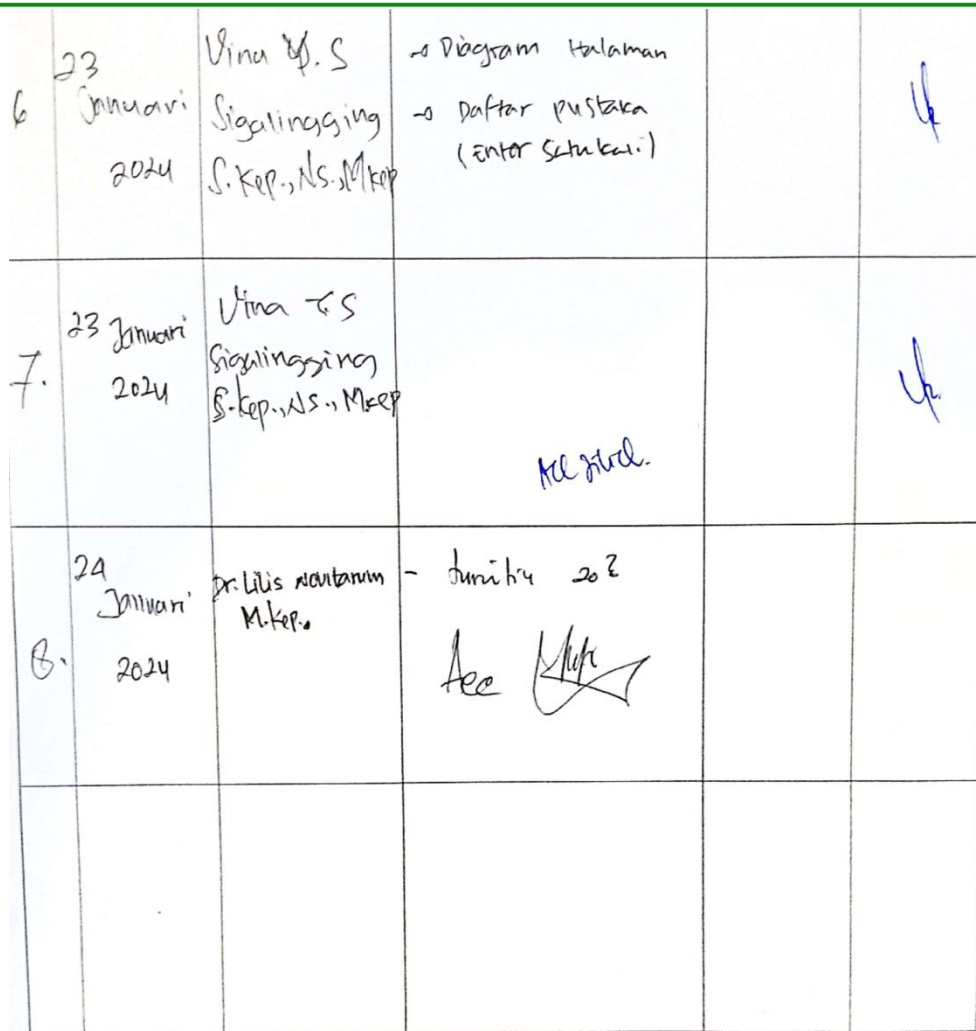 6
23
Januari
2024
Vina Y. S
Sigalingging
S.Kep., Ns., MKep
→ Diagram Halaman
→ Daftar pustaka
(Enter Satu kali)
7.
23 Januari
2024
Vina Y S
Sigalingging
S.Kep., Ns., MKep
Acc jilid.
8.
24
Januari
2024
Dr. Lilis Novitarum
M.Kep.
- turnitin 20%
Acc